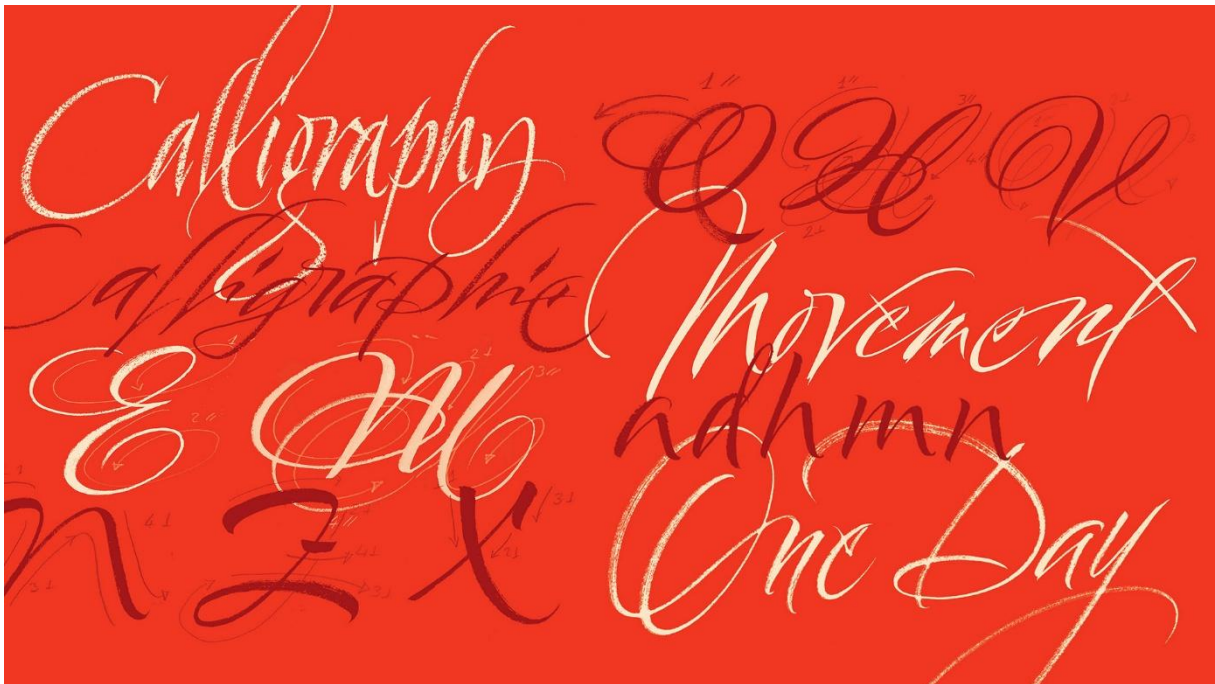 Calligraphy
Calligraphie
E M
n Z X
Q H V
Movement
adhmn
One Day